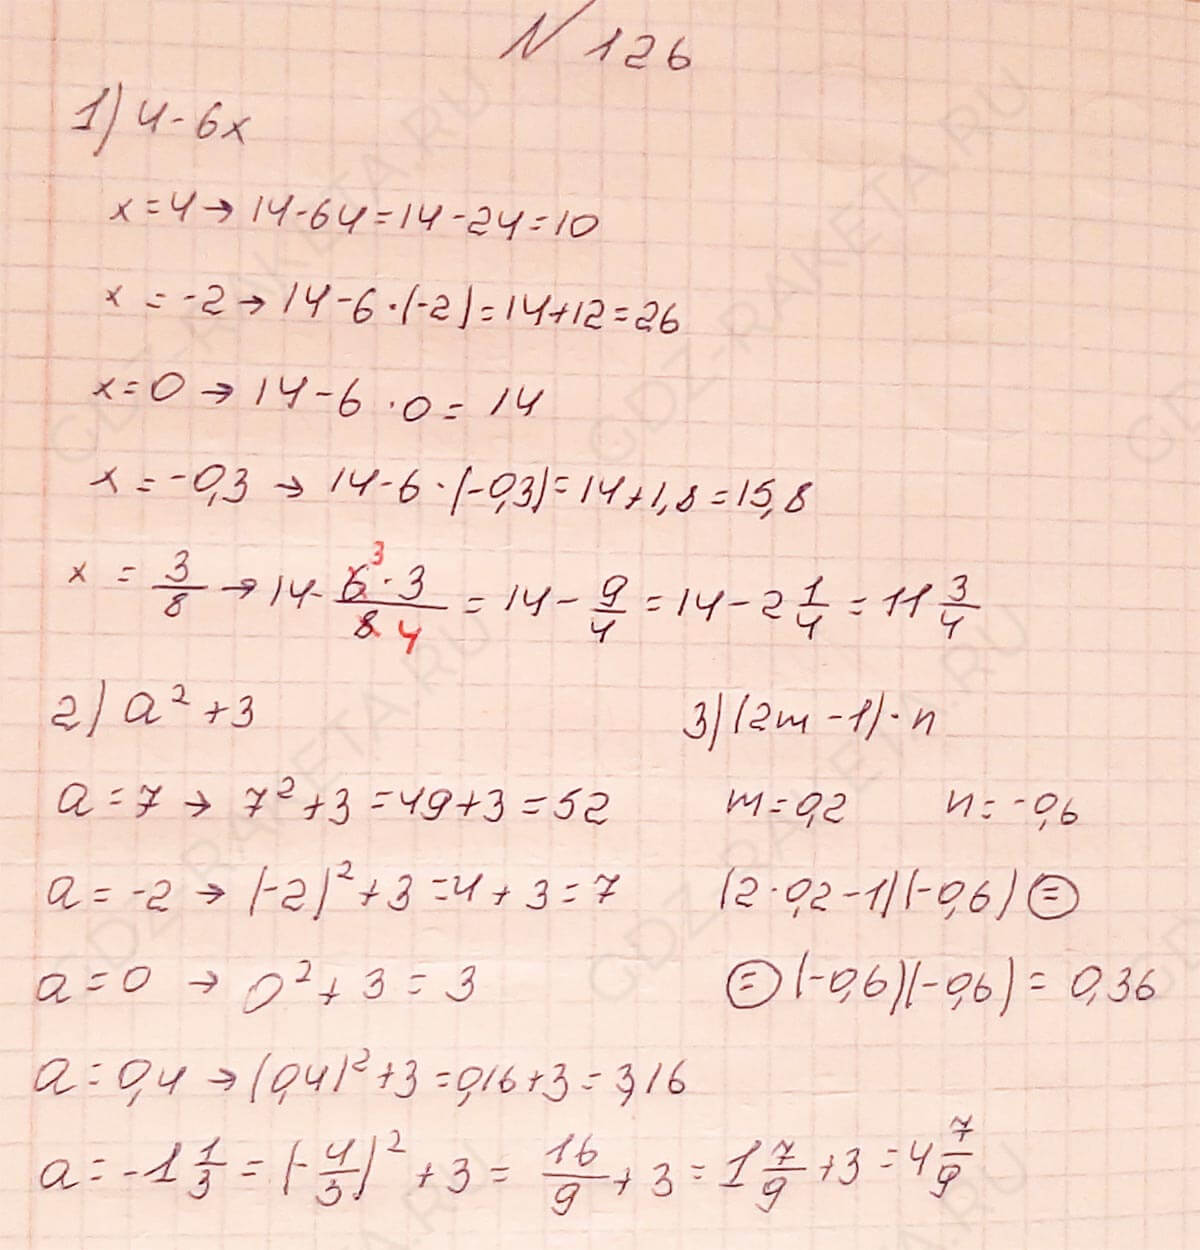 N 126
1) 4-6x
x=4→ 14-64=14-24=10
x=-2→ 14-6·(-2)=14+12=26
x=0→ 14-6·0=14
x=-0,3→ 14-6·(-0,3)=14+1,8=15,8
x = 3/8 → 14- 6³·3/8 4 = 14 - 9/4 = 14 - 2 1/4 = 11 3/4
2) a²+3
a=7→ 7²+3=49+3=52
a=-2→ (-2)²+3=4+3=7
a=0→ 0²+3=3
a=0,4→ (0,4)²+3=0,16+3=3,16
a=-1 1/3 = (-4/3)²+3 = 16/9+3 = 1 7/9+3 = 4 7/9
3) (2m-1)·n
m=0,2 n=-0,6
(2·0,2-1)(-0,6) =
= (-0,6)(-0,6) = 0,36
GDZ-RAKETA.RU